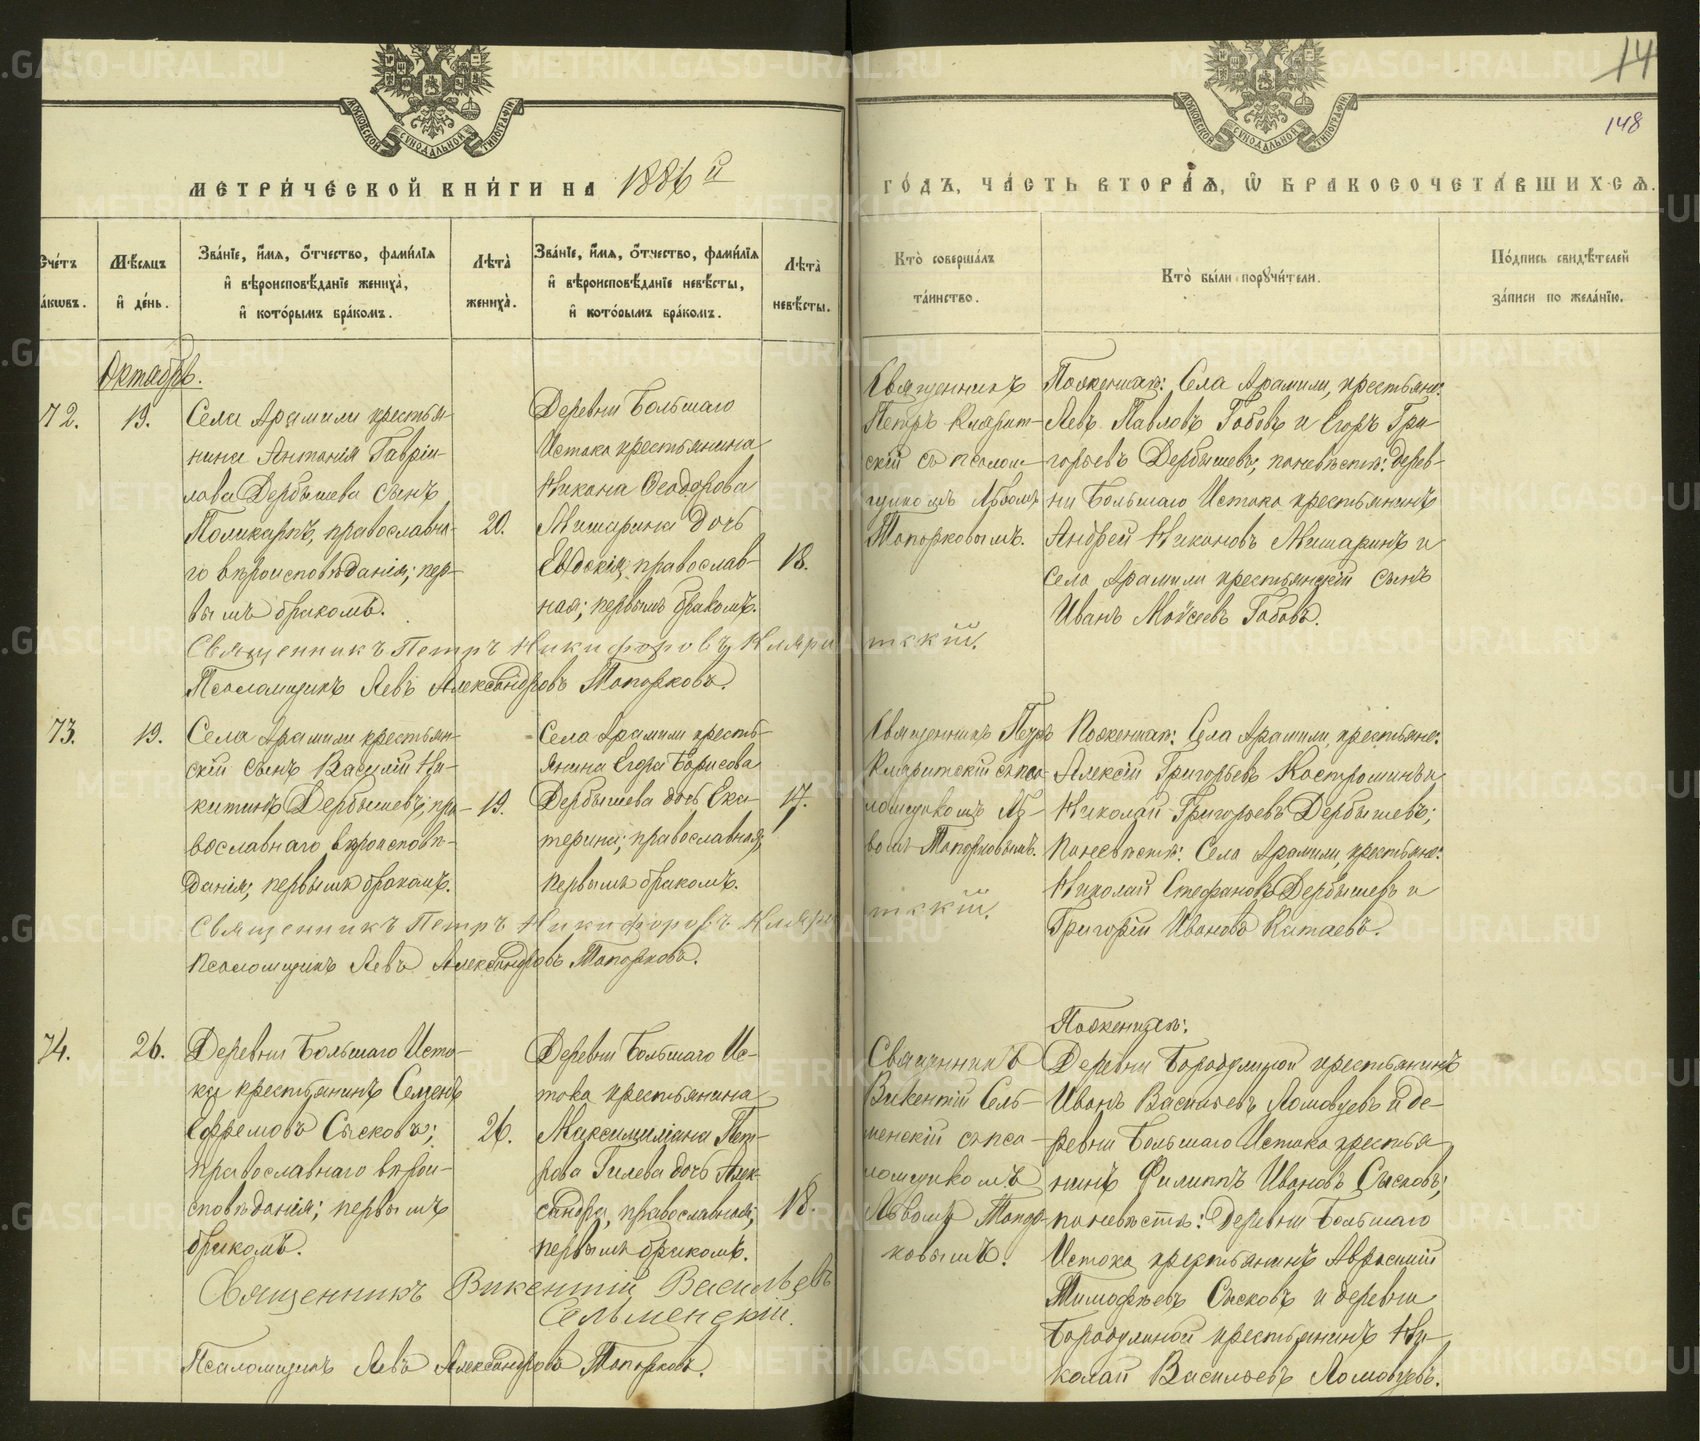 14
148
МЕТРИ́ЧЕСКОЙ КНИ́ГИ НА 1886 й
ГО́ДЪ, ЧА́СТЬ ВТОРА́Я, Ѡ БРАКОСОЧЕТА́ВШИХСЯ.
Счётъ
браковъ.
Мѣсяцъ
и де́нь.
Зва́нїе, и́мя, о́тчество, фами́лїя
и вѣроисповѣ́данїе жениха̀,
и кото́рымъ бра́комъ.
Лѣта̀
жениха̀.
Зва́нїе, и́мя, о́тчество, фами́лїя
и вѣроисповѣ́данїе невѣ́сты,
и кото́рымъ бра́комъ.
Лѣта̀
невѣ́сты.
Кто̀ соверша́лъ
та́инство.
Кто̀ бы́ли поручи́тели.
По́дпись свидѣ́телей
за́писи по жела́нїю.
Октябрь.
72.
19.
Села Арамили крестья-
нина Антонія Гаврiи-
лова Дербышева сынъ
Поликарпъ, православна-
го вѣроисповѣданія; пер-
вымъ бракомъ.
20.
Деревни Большаго
Истока крестьянина
Никона Ѳеодорова
Мишарина дочь
Евдокія, православ-
ная; первымъ бракомъ.
18.
Священникъ
Петръ Клярит-
скій съ псалом-
щикомъ Львомъ
Топорковымъ.
По женихѣ: Села Арамили, крестьяне:
Левъ Павловъ Бабовъ и Егоръ Гри-
горьевъ Дербышевъ; по невѣстѣ: дерев-
ни Большаго Истока крестьянинъ
Андрей Никоновъ Мишаринъ и
села Арамили крестьянскій сынъ
Иванъ Моисеевъ Бабовъ.
Священникъ Петръ Никифоровъ Кляритскій.
Псаломщикъ Левъ Александровъ Топорковъ.
73.
19.
Села Арамили крестьян-
скій сынъ Василій Ни-
китинъ Дербышевъ, пра-
вославнаго вѣроисповѣ-
данія; первымъ бракомъ.
19.
Села Арамили кресть-
янина Егора Борисова
Дербышева дочь Ека-
терина; православная,
первымъ бракомъ.
17.
Священникъ Петръ
Кляритскій съ пса-
ломщикомъ Ль-
вомъ Топорковымъ.
По женихѣ: Села Арамили, крестьяне:
Алексій Григорьевъ Костроминъ и
Николай Григорьевъ Дербышевъ;
По невѣстѣ: Села Арамили, крестьяне:
Николай Стефановъ Дербышевъ и
Григорій Ивановъ Китаевъ.
Священникъ Петръ Никифоровъ Кляритскій.
Псаломщикъ Левъ Александровъ Топорковъ.
74.
26.
Деревни Большаго Исто-
ка крестьянинъ Семенъ
Ефремовъ Сысковъ;
православнаго вѣрои-
сповѣданія; первымъ
бракомъ.
26.
Деревни Большаго Ис-
тока крестьянина
Максимиліана Пет-
рова Гилева дочь Алек-
сандра, православная;
первымъ бракомъ.
18.
Священникъ
Викентій Сель-
менскій съ пса-
ломщикомъ
Львомъ Топор-
ковымъ.
По женихѣ:
Деревни Бородулиной крестьянинъ
Иванъ Васильевъ Ломовцевъ и де-
ревни Большаго Истока крестья-
нинъ Филиппъ Ивановъ Сысковъ;
по невѣстѣ: Деревни Большаго
Истока крестьянинъ Афанасій
Тимофѣевъ Сысковъ и деревни
Бородулиной крестьянинъ Ни-
колай Васильевъ Ломовцевъ.
Священникъ Викентій Васильевъ
Сельменскій.
Псаломщикъ Левъ Александровъ Топорковъ.